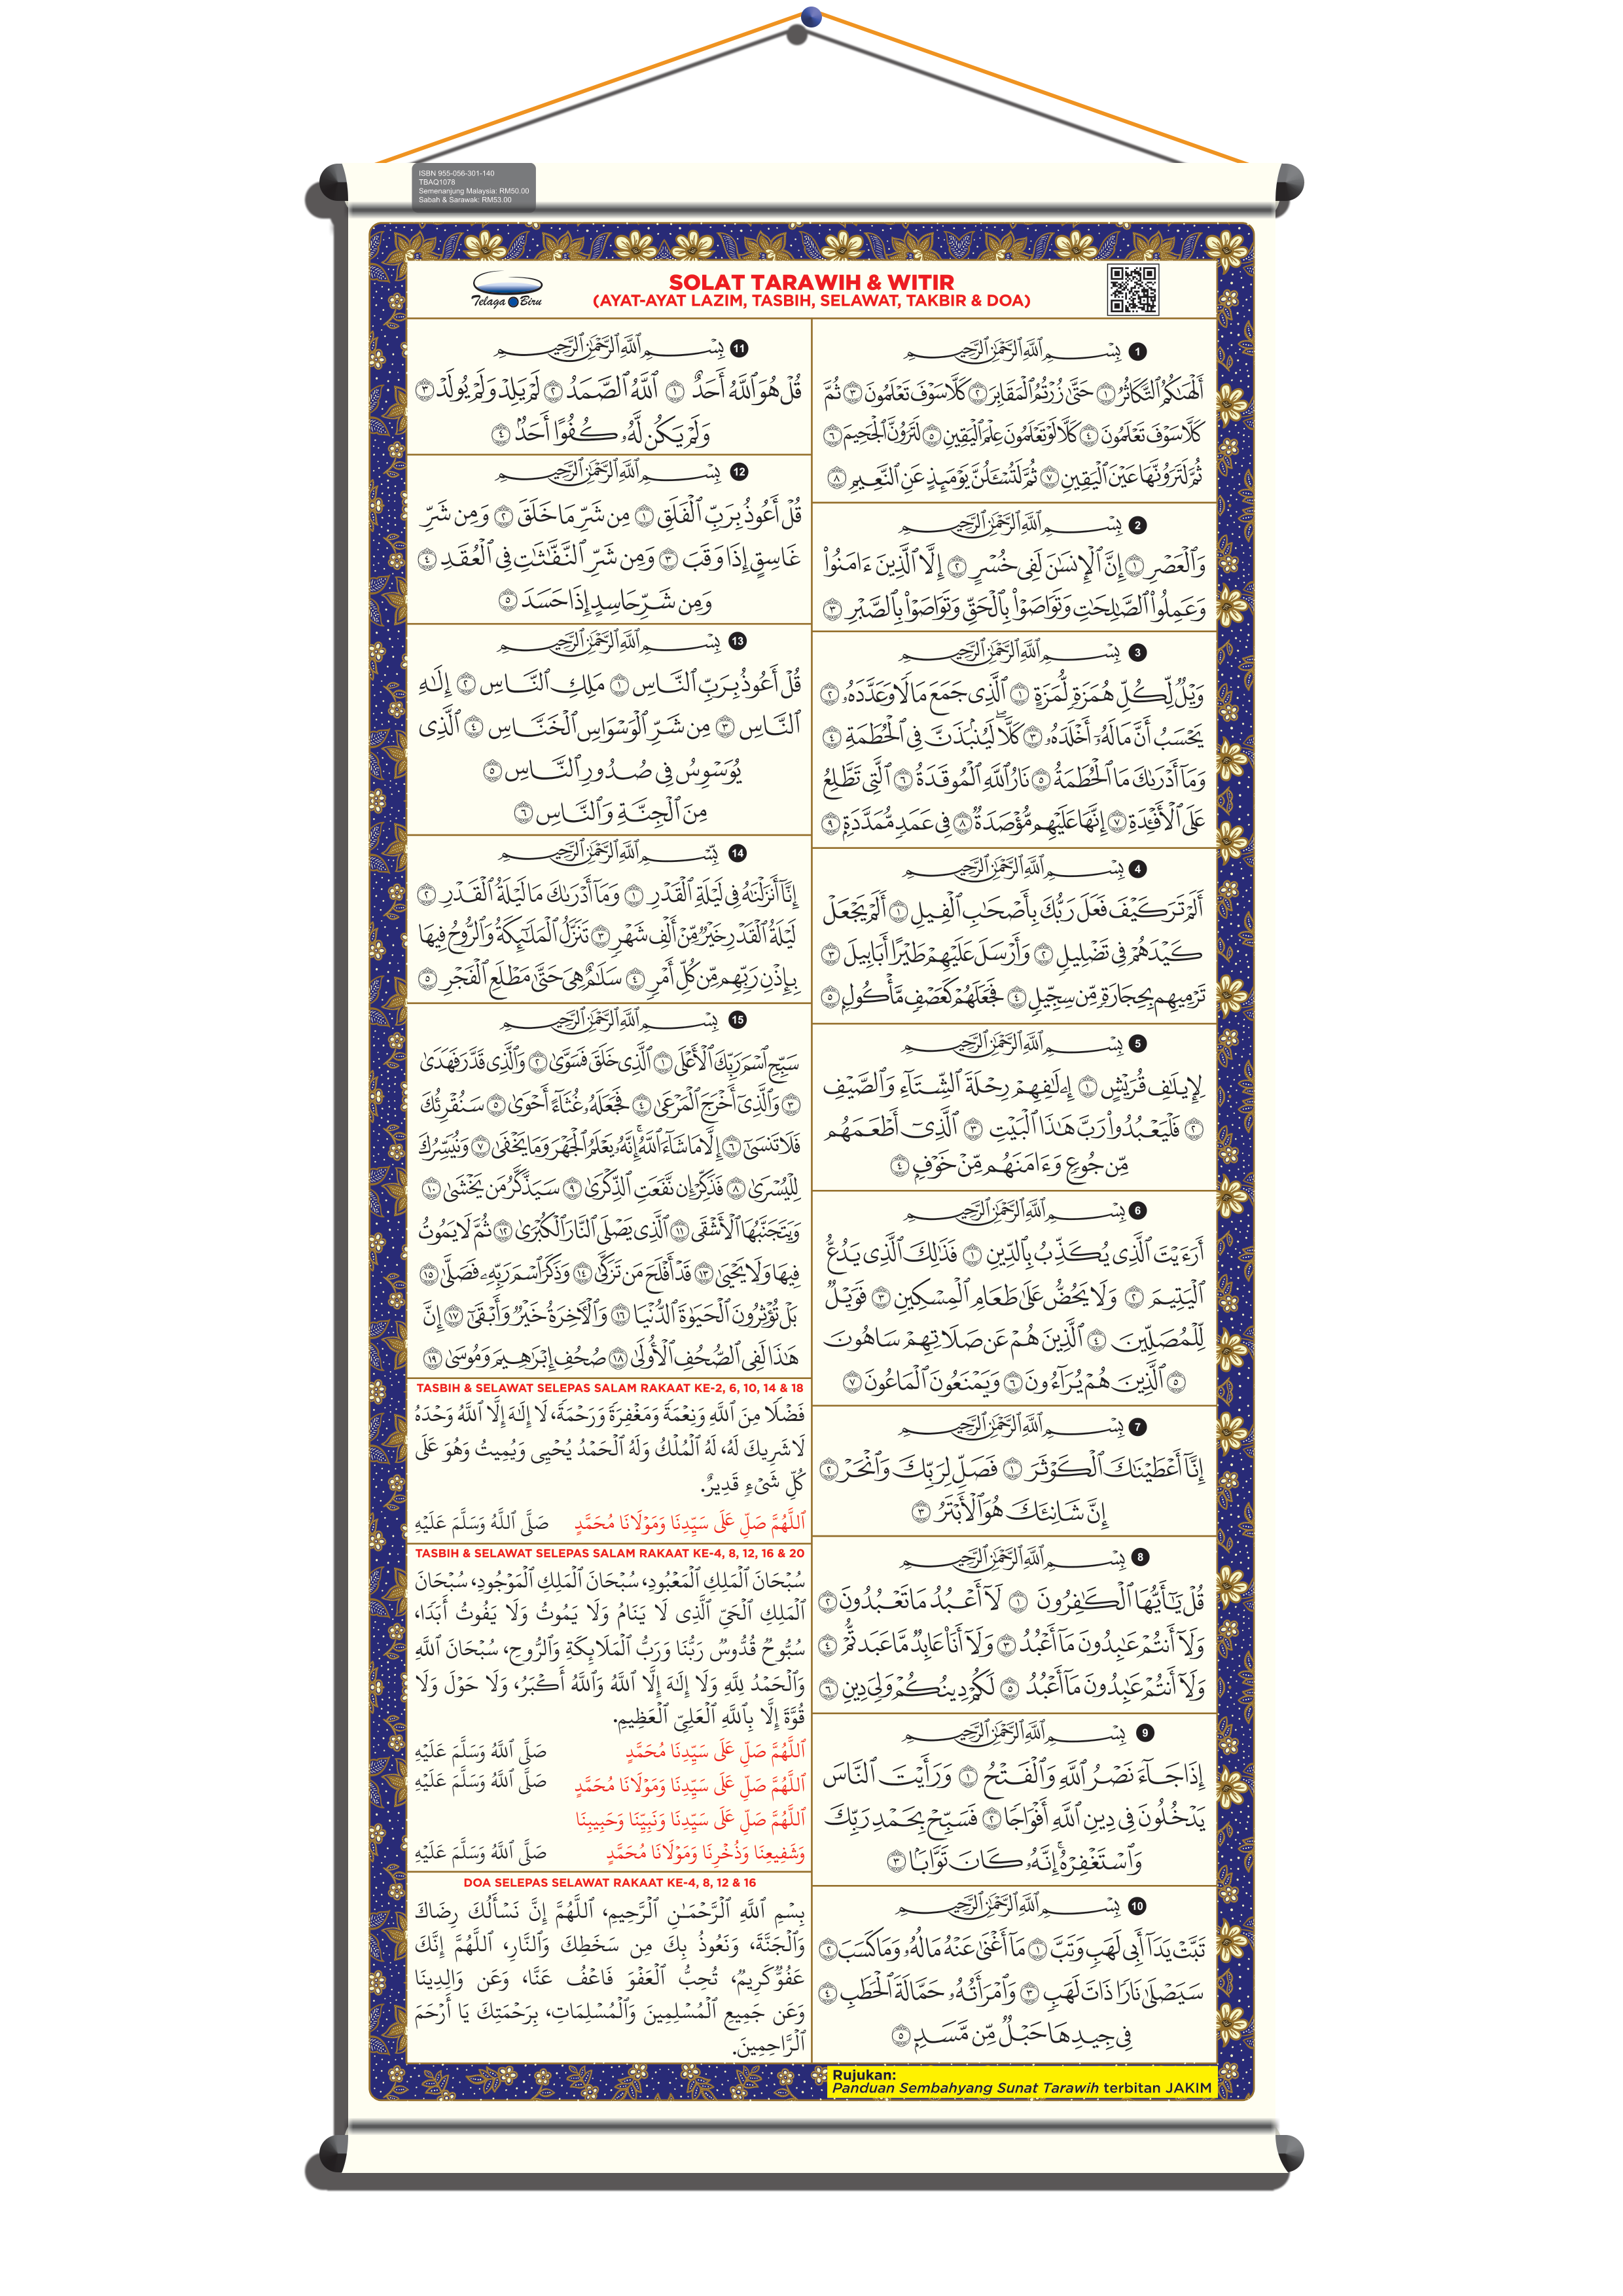 ISBN 955-056-301-140
TBAQ1078
Semenanjung Malaysia: RM50.00
Sabah & Sarawak: RM53.00
Telaga Biru
SOLAT TARAWIH & WITIR
(AYAT-AYAT LAZIM, TASBIH, SELAWAT, TAKBIR & DOA)
1 بِسْمِ ٱللَّهِ ٱلرَّحْمَٰنِ ٱلرَّحِيمِ
أَلْهَىٰكُمُ ٱلتَّكَاثُرُ ١ حَتَّىٰ زُرْتُمُ ٱلْمَقَابِرَ ٢ كَلَّا سَوْفَ تَعْلَمُونَ ٣ ثُمَّ
كَلَّا سَوْفَ تَعْلَمُونَ ٤ كَلَّا لَوْ تَعْلَمُونَ عِلْمَ ٱلْيَقِينِ ٥ لَتَرَوُنَّ ٱلْجَحِيمَ ٦
ثُمَّ لَتَرَوُنَّهَا عَيْنَ ٱلْيَقِينِ ٧ ثُمَّ لَتُسْـَٔلُنَّ يَوْمَئِذٍ عَنِ ٱلنَّعِيمِ ٨
2 بِسْمِ ٱللَّهِ ٱلرَّحْمَٰنِ ٱلرَّحِيمِ
وَٱلْعَصْرِ ١ إِنَّ ٱلْإِنسَٰنَ لَفِى خُسْرٍ ٢ إِلَّا ٱلَّذِينَ ءَامَنُوا۟
وَعَمِلُوا۟ ٱلصَّٰلِحَٰتِ وَتَوَاصَوْا۟ بِٱلْحَقِّ وَتَوَاصَوْا۟ بِٱلصَّبْرِ ٣
3 بِسْمِ ٱللَّهِ ٱلرَّحْمَٰنِ ٱلرَّحِيمِ
وَيْلٌ لِّكُلِّ هُمَزَةٍ لُّمَزَةٍ ١ ٱلَّذِى جَمَعَ مَالًا وَعَدَّدَهُۥ ٢
يَحْسَبُ أَنَّ مَالَهُۥٓ أَخْلَدَهُۥ ٣ كَلَّا ۖ لَيُنۢبَذَنَّ فِى ٱلْحُطَمَةِ ٤
وَمَآ أَدْرَىٰكَ مَا ٱلْحُطَمَةُ ٥ نَارُ ٱللَّهِ ٱلْمُوقَدَةُ ٦ ٱلَّتِى تَطَّلِعُ
عَلَى ٱلْأَفْـِٔدَةِ ٧ إِنَّهَا عَلَيْهِم مُّؤْصَدَةٌ ٨ فِى عَمَدٍ مُّمَدَّدَةٍۭ ٩
4 بِسْمِ ٱللَّهِ ٱلرَّحْمَٰنِ ٱلرَّحِيمِ
أَلَمْ تَرَ كَيْفَ فَعَلَ رَبُّكَ بِأَصْحَٰبِ ٱلْفِيلِ ١ أَلَمْ يَجْعَلْ
كَيْدَهُمْ فِى تَضْلِيلٍ ٢ وَأَرْسَلَ عَلَيْهِمْ طَيْرًا أَبَابِيلَ ٣
تَرْمِيهِم بِحِجَارَةٍ مِّن سِجِّيلٍ ٤ فَجَعَلَهُمْ كَعَصْفٍ مَّأْكُولٍۭ ٥
5 بِسْمِ ٱللَّهِ ٱلرَّحْمَٰنِ ٱلرَّحِيمِ
لِإِيلَٰفِ قُرَيْشٍ ١ إِۦلَٰفِهِمْ رِحْلَةَ ٱلشِّتَآءِ وَٱلصَّيْفِ
٢ فَلْيَعْبُدُوا۟ رَبَّ هَٰذَا ٱلْبَيْتِ ٣ ٱلَّذِىٓ أَطْعَمَهُم
مِّن جُوعٍ وَءَامَنَهُم مِّنْ خَوْفٍۭ ٤
6 بِسْمِ ٱللَّهِ ٱلرَّحْمَٰنِ ٱلرَّحِيمِ
أَرَءَيْتَ ٱلَّذِى يُكَذِّبُ بِٱلدِّينِ ١ فَذَٰلِكَ ٱلَّذِى يَدُعُّ
ٱلْيَتِيمَ ٢ وَلَا يَحُضُّ عَلَىٰ طَعَامِ ٱلْمِسْكِينِ ٣ فَوَيْلٌ
لِّلْمُصَلِّينَ ٤ ٱلَّذِينَ هُمْ عَن صَلَاتِهِمْ سَاهُونَ
٥ ٱلَّذِينَ هُمْ يُرَآءُونَ ٦ وَيَمْنَعُونَ ٱلْمَاعُونَ ٧
7 بِسْمِ ٱللَّهِ ٱلرَّحْمَٰنِ ٱلرَّحِيمِ
إِنَّآ أَعْطَيْنَٰكَ ٱلْكَوْثَرَ ١ فَصَلِّ لِرَبِّكَ وَٱنْحَرْ ٢
إِنَّ شَانِئَكَ هُوَ ٱلْأَبْتَرُ ٣
8 بِسْمِ ٱللَّهِ ٱلرَّحْمَٰنِ ٱلرَّحِيمِ
قُلْ يَٰٓأَيُّهَا ٱلْكَٰفِرُونَ ١ لَآ أَعْبُدُ مَا تَعْبُدُونَ ٢
وَلَآ أَنتُمْ عَٰبِدُونَ مَآ أَعْبُدُ ٣ وَلَآ أَنَا۠ عَابِدٌ مَّا عَبَدتُّمْ ٤
وَلَآ أَنتُمْ عَٰبِدُونَ مَآ أَعْبُدُ ٥ لَكُمْ دِينُكُمْ وَلِىَ دِينِ ٦
9 بِسْمِ ٱللَّهِ ٱلرَّحْمَٰنِ ٱلرَّحِيمِ
إِذَا جَآءَ نَصْرُ ٱللَّهِ وَٱلْفَتْحُ ١ وَرَأَيْتَ ٱلنَّاسَ
يَدْخُلُونَ فِى دِينِ ٱللَّهِ أَفْوَاجًا ٢ فَسَبِّحْ بِحَمْدِ رَبِّكَ
وَٱسْتَغْفِرْهُ ۚ إِنَّهُۥ كَانَ تَوَّابًۢا ٣
10 بِسْمِ ٱللَّهِ ٱلرَّحْمَٰنِ ٱلرَّحِيمِ
تَبَّتْ يَدَآ أَبِى لَهَبٍ وَتَبَّ ١ مَآ أَغْنَىٰ عَنْهُ مَالُهُۥ وَمَا كَسَبَ ٢
سَيَصْلَىٰ نَارًا ذَاتَ لَهَبٍ ٣ وَٱمْرَأَتُهُۥ حَمَّالَةَ ٱلْحَطَبِ ٤
فِى جِيدِهَا حَبْلٌ مِّن مَّسَدٍۭ ٥
11 بِسْمِ ٱللَّهِ ٱلرَّحْمَٰنِ ٱلرَّحِيمِ
قُلْ هُوَ ٱللَّهُ أَحَدٌ ١ ٱللَّهُ ٱلصَّمَدُ ٢ لَمْ يَلِدْ وَلَمْ يُولَدْ ٣
وَلَمْ يَكُن لَّهُۥ كُفُوًا أَحَدٌۢ ٤
12 بِسْمِ ٱللَّهِ ٱلرَّحْمَٰنِ ٱلرَّحِيمِ
قُلْ أَعُوذُ بِرَبِّ ٱلْفَلَقِ ١ مِن شَرِّ مَا خَلَقَ ٢ وَمِن شَرِّ
غَاسِقٍ إِذَا وَقَبَ ٣ وَمِن شَرِّ ٱلنَّفَّٰثَٰتِ فِى ٱلْعُقَدِ ٤
وَمِن شَرِّ حَاسِدٍ إِذَا حَسَدَ ٥
13 بِسْمِ ٱللَّهِ ٱلرَّحْمَٰنِ ٱلرَّحِيمِ
قُلْ أَعُوذُ بِرَبِّ ٱلنَّاسِ ١ مَلِكِ ٱلنَّاسِ ٢ إِلَٰهِ
ٱلنَّاسِ ٣ مِن شَرِّ ٱلْوَسْوَاسِ ٱلْخَنَّاسِ ٤ ٱلَّذِى
يُوَسْوِسُ فِى صُدُورِ ٱلنَّاسِ ٥
مِنَ ٱلْجِنَّةِ وَٱلنَّاسِ ٦
14 بِسْمِ ٱللَّهِ ٱلرَّحْمَٰنِ ٱلرَّحِيمِ
إِنَّآ أَنزَلْنَٰهُ فِى لَيْلَةِ ٱلْقَدْرِ ١ وَمَآ أَدْرَىٰكَ مَا لَيْلَةُ ٱلْقَدْرِ ٢
لَيْلَةُ ٱلْقَدْرِ خَيْرٌ مِّنْ أَلْفِ شَهْرٍ ٣ تَنَزَّلُ ٱلْمَلَٰٓئِكَةُ وَٱلرُّوحُ فِيهَا
بِإِذْنِ رَبِّهِم مِّن كُلِّ أَمْرٍ ٤ سَلَٰمٌ هِىَ حَتَّىٰ مَطْلَعِ ٱلْفَجْرِ ٥
15 بِسْمِ ٱللَّهِ ٱلرَّحْمَٰنِ ٱلرَّحِيمِ
سَبِّحِ ٱسْمَ رَبِّكَ ٱلْأَعْلَى ١ ٱلَّذِى خَلَقَ فَسَوَّىٰ ٢ وَٱلَّذِى قَدَّرَ فَهَدَىٰ
٣ وَٱلَّذِىٓ أَخْرَجَ ٱلْمَرْعَىٰ ٤ فَجَعَلَهُۥ غُثَآءً أَحْوَىٰ ٥ سَنُقْرِئُكَ
فَلَا تَنسَىٰٓ ٦ إِلَّا مَا شَآءَ ٱللَّهُ ۚ إِنَّهُۥ يَعْلَمُ ٱلْجَهْرَ وَمَا يَخْفَىٰ ٧ وَنُيَسِّرُكَ
لِلْيُسْرَىٰ ٨ فَذَكِّرْ إِن نَّفَعَتِ ٱلذِّكْرَىٰ ٩ سَيَذَّكَّرُ مَن يَخْشَىٰ ١٠
وَيَتَجَنَّبُهَا ٱلْأَشْقَى ١١ ٱلَّذِى يَصْلَى ٱلنَّارَ ٱلْكُبْرَىٰ ١٢ ثُمَّ لَا يَمُوتُ
فِيهَا وَلَا يَحْيَىٰ ١٣ قَدْ أَفْلَحَ مَن تَزَكَّىٰ ١٤ وَذَكَرَ ٱسْمَ رَبِّهِۦ فَصَلَّىٰ ١٥
بَلْ تُؤْثِرُونَ ٱلْحَيَوٰةَ ٱلدُّنْيَا ١٦ وَٱلْـَٔاخِرَةُ خَيْرٌ وَأَبْقَىٰٓ ١٧ إِنَّ
هَٰذَا لَفِى ٱلصُّحُفِ ٱلْأُولَىٰ ١٨ صُحُفِ إِبْرَٰهِيمَ وَمُوسَىٰ ١٩
TASBIH & SELAWAT SELEPAS SALAM RAKAAT KE-2, 6, 10, 14 & 18
فَضْلًا مِنَ ٱللَّهِ وَنِعْمَةً وَمَغْفِرَةً وَرَحْمَةً، لَا إِلَٰهَ إِلَّا ٱللَّهُ وَحْدَهُ
لَا شَرِيكَ لَهُ، لَهُ ٱلْمُلْكُ وَلَهُ ٱلْحَمْدُ يُحْيِى وَيُمِيتُ وَهُوَ عَلَى
كُلِّ شَىْءٍ قَدِيرٌ.
ٱللَّهُمَّ صَلِّ عَلَى سَيِّدِنَا وَمَوْلَانَا مُحَمَّدٍ صَلَّى ٱللَّهُ وَسَلَّمَ عَلَيْهِ
TASBIH & SELAWAT SELEPAS SALAM RAKAAT KE-4, 8, 12, 16 & 20
سُبْحَانَ ٱلْمَلِكِ ٱلْمَعْبُودِ، سُبْحَانَ ٱلْمَلِكِ ٱلْمَوْجُودِ، سُبْحَانَ
ٱلْمَلِكِ ٱلْحَيِّ ٱلَّذِى لَا يَنَامُ وَلَا يَمُوتُ وَلَا يَفُوتُ أَبَدًا،
سُبُّوحٌ قُدُّوسٌ رَبُّنَا وَرَبُّ ٱلْمَلَائِكَةِ وَٱلرُّوحِ، سُبْحَانَ ٱللَّهِ
وَٱلْحَمْدُ لِلَّهِ وَلَا إِلَٰهَ إِلَّا ٱللَّهُ وَٱللَّهُ أَكْبَرُ، وَلَا حَوْلَ وَلَا
قُوَّةَ إِلَّا بِٱللَّهِ ٱلْعَلِيِّ ٱلْعَظِيمِ.
ٱللَّهُمَّ صَلِّ عَلَى سَيِّدِنَا مُحَمَّدٍ صَلَّى ٱللَّهُ وَسَلَّمَ عَلَيْهِ
ٱللَّهُمَّ صَلِّ عَلَى سَيِّدِنَا وَمَوْلَانَا مُحَمَّدٍ صَلَّى ٱللَّهُ وَسَلَّمَ عَلَيْهِ
ٱللَّهُمَّ صَلِّ عَلَى سَيِّدِنَا وَنَبِيِّنَا وَحَبِيبِنَا
وَشَفِيعِنَا وَذُخْرِنَا وَمَوْلَانَا مُحَمَّدٍ صَلَّى ٱللَّهُ وَسَلَّمَ عَلَيْهِ
DOA SELEPAS SELAWAT RAKAAT KE-4, 8, 12 & 16
بِسْمِ ٱللَّهِ ٱلرَّحْمَٰنِ ٱلرَّحِيمِ، ٱللَّهُمَّ إِنَّ نَسْأَلُكَ رِضَاكَ
وَٱلْجَنَّةَ، وَنَعُوذُ بِكَ مِن سَخَطِكَ وَٱلنَّارِ، ٱللَّهُمَّ إِنَّكَ
عَفُوٌّ كَرِيمٌ، تُحِبُّ ٱلْعَفْوَ فَاعْفُ عَنَّا، وَعَن وَالِدِينَا
وَعَن جَمِيعِ ٱلْمُسْلِمِينَ وَٱلْمُسْلِمَاتِ، بِرَحْمَتِكَ يَا أَرْحَمَ
ٱلرَّاحِمِينَ.
Rujukan:
Panduan Sembahyang Sunat Tarawih terbitan JAKIM